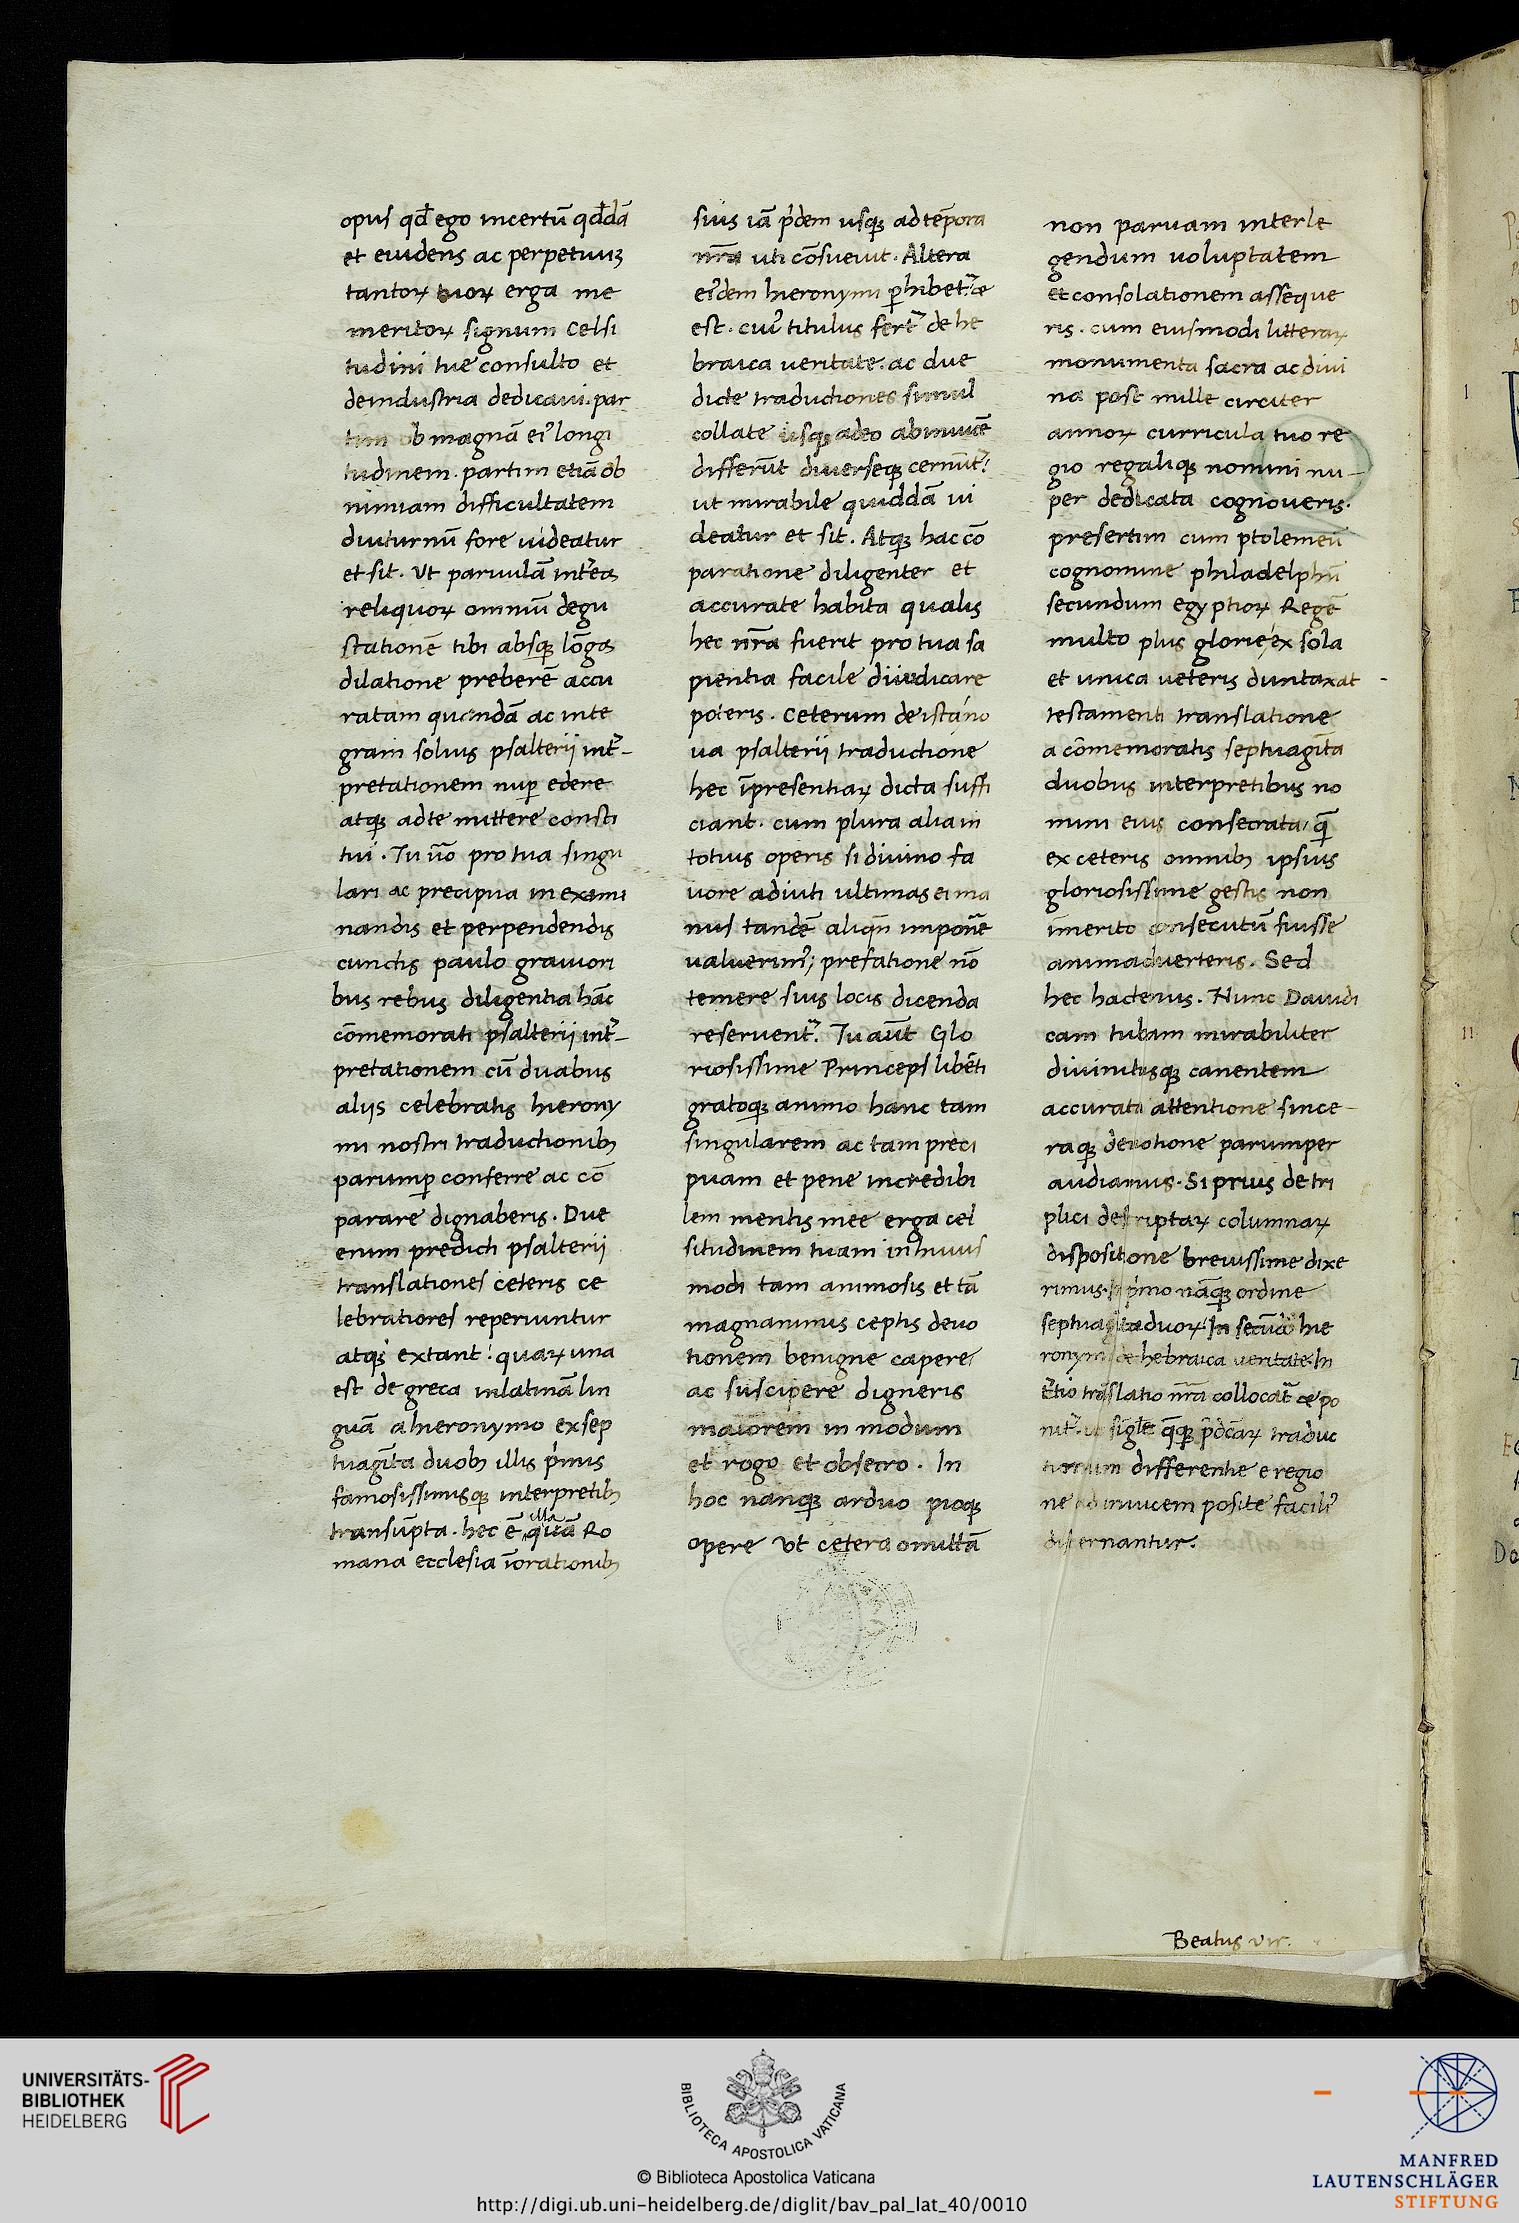 opus qđ ego incertū qđdā
et euidens ac perpetuuꝫ
tantoꝝ tuoꝝ erga me
meritoꝝ signum Celsi
tudini tue consulto et
deindustria dedicaui. par
tim ob magnā ei᾽ longi
tudinem. partim etiā ob
nimiam difficultatem
diuturnū fore uideatur
et sit. Ut paruulā int̄ea
reliquoꝝ omniū degu
stationē tibi absqꝫ lōga
dilatione preberē accu
ratam quandā ac inte
gram solius psalterij int̄
pretationem nuꝑ edere
atqꝫ ad te mittere consti
tui. Tu ūo pro tua singu
lari ac precipua in exami
nandis et perpendendis
cunctis paulo grauiori
bus rebus diligentia hāc
cōmemorati psalterij int̄
pretationem cū duabus
alijs celebratis hierony
mi nostri traductionibꝫ
parumꝑ conferre ac cō
parare dignaberis. Due
enim predicti psalterij
translationes ceteris ce
lebratiores reperiuntur
atqꝫ extant: quaꝝ una
est de greca in latinā lin
guā a hieronymo ex sep
tuagīta duobꝫ illis p̄mis
famosissimisqꝫ interpretibꝫ
transūpta. hec ē illa quā Ro
mana ecclesia ī orationibꝫ
suis iā p̄dem usqꝫ ad tēpora
nr̄a uti cōsueuit. Altera
eidem hieronymi ꝑhibet᾽
est. cui᾽ titulus fert᾽ de he
braica ueritate. ac due
dicte traductiones simul
collate usqꝫ adeo abinuicē
differūt diuerseqꝫ cernūt᾽
ut mirabile quiddā ui
deatur et sit. Atqꝫ hac cō
paratione diligenter et
accurate habita qualis
hec nr̄a fuerit pro tua sa
pientia facile diiudicare
poteris. Ceterum de ista no
ua psalterij traductione
hec īpresentiaꝝ dicta suffi
ciant. cum plura alia in
totius operis si diuino fa
uore adiuti ultimas ei ma
nus tandē aliqn̄ imponē
ualuerim᾽; prefatione nō
temere suis locis dicenda
reseruent᾽. Tu aūt Glo
riosissime Princeps libēti
gratoqꝫ animo hanc tam
singularem ac tam preci
puam et pene incredibi
lem mentis mee erga cel
situdinem tuam in huius
modi tam animosis et tā
magnanimis ceptis deuo
tionem benigne capere
ac suscipere digneris
maiorem in modum
et rogo et obsecro. In
hoc nanqꝫ arduo pioqꝫ
opere Vt cetera omittā
non paruam interle
gendum uoluptatem
et consolationem asseque
ris. cum eiusmodi litteraꝝ
monumenta sacra ac diui
na post mille circiter
annoꝝ curricula tuo re
gio regaliqꝫ nomini nu
per dedicata cognoueris.
presertim cum ptolemeū
cognomine philadelphū
secundum egyptioꝝ Regē
multo plus glorie ex sola
et unica ueteris duntaxat
testamenti translatione
a cōmemoratis septuagīta
duobus interpretibus no
mini eius consecrata, q̄
ex ceteris omnibꝫ ipsius
gloriosissime gestis non
imerito consecutū fuisse
animaduerteris. Sed
hec hactenus. Nunc Dauidi
cam tubam mirabiliter
diuinitusqꝫ canentem
accurata attentione since
raqꝫ deuotione parumper
audiamus. Si prius de tri
plici descriptaꝝ columnaꝝ
dispositione breuissime dixe
rimus. p̄mo nāqꝫ ordine
septuagītaduoꝝ. In secūdo hie
ronymi de hebraica ueritate. In
t̄tio trāslatio nr̄a collocat᾽
nit᾽. ut p̄dc̄aꝝ traduc
tionum differentie e regio
ne adinuicem posite facili᾽
discernantur.
Beatus vir.
UNIVERSITÄTS-
BIBLIOTHEK
HEIDELBERG
BIBLIOTECA APOSTOLICA VATICANA
© Biblioteca Apostolica Vaticana
http://digi.ub.uni-heidelberg.de/diglit/bav_pal_lat_40/0010
MANFRED
LAUTENSCHLÄGER
STIFTUNG